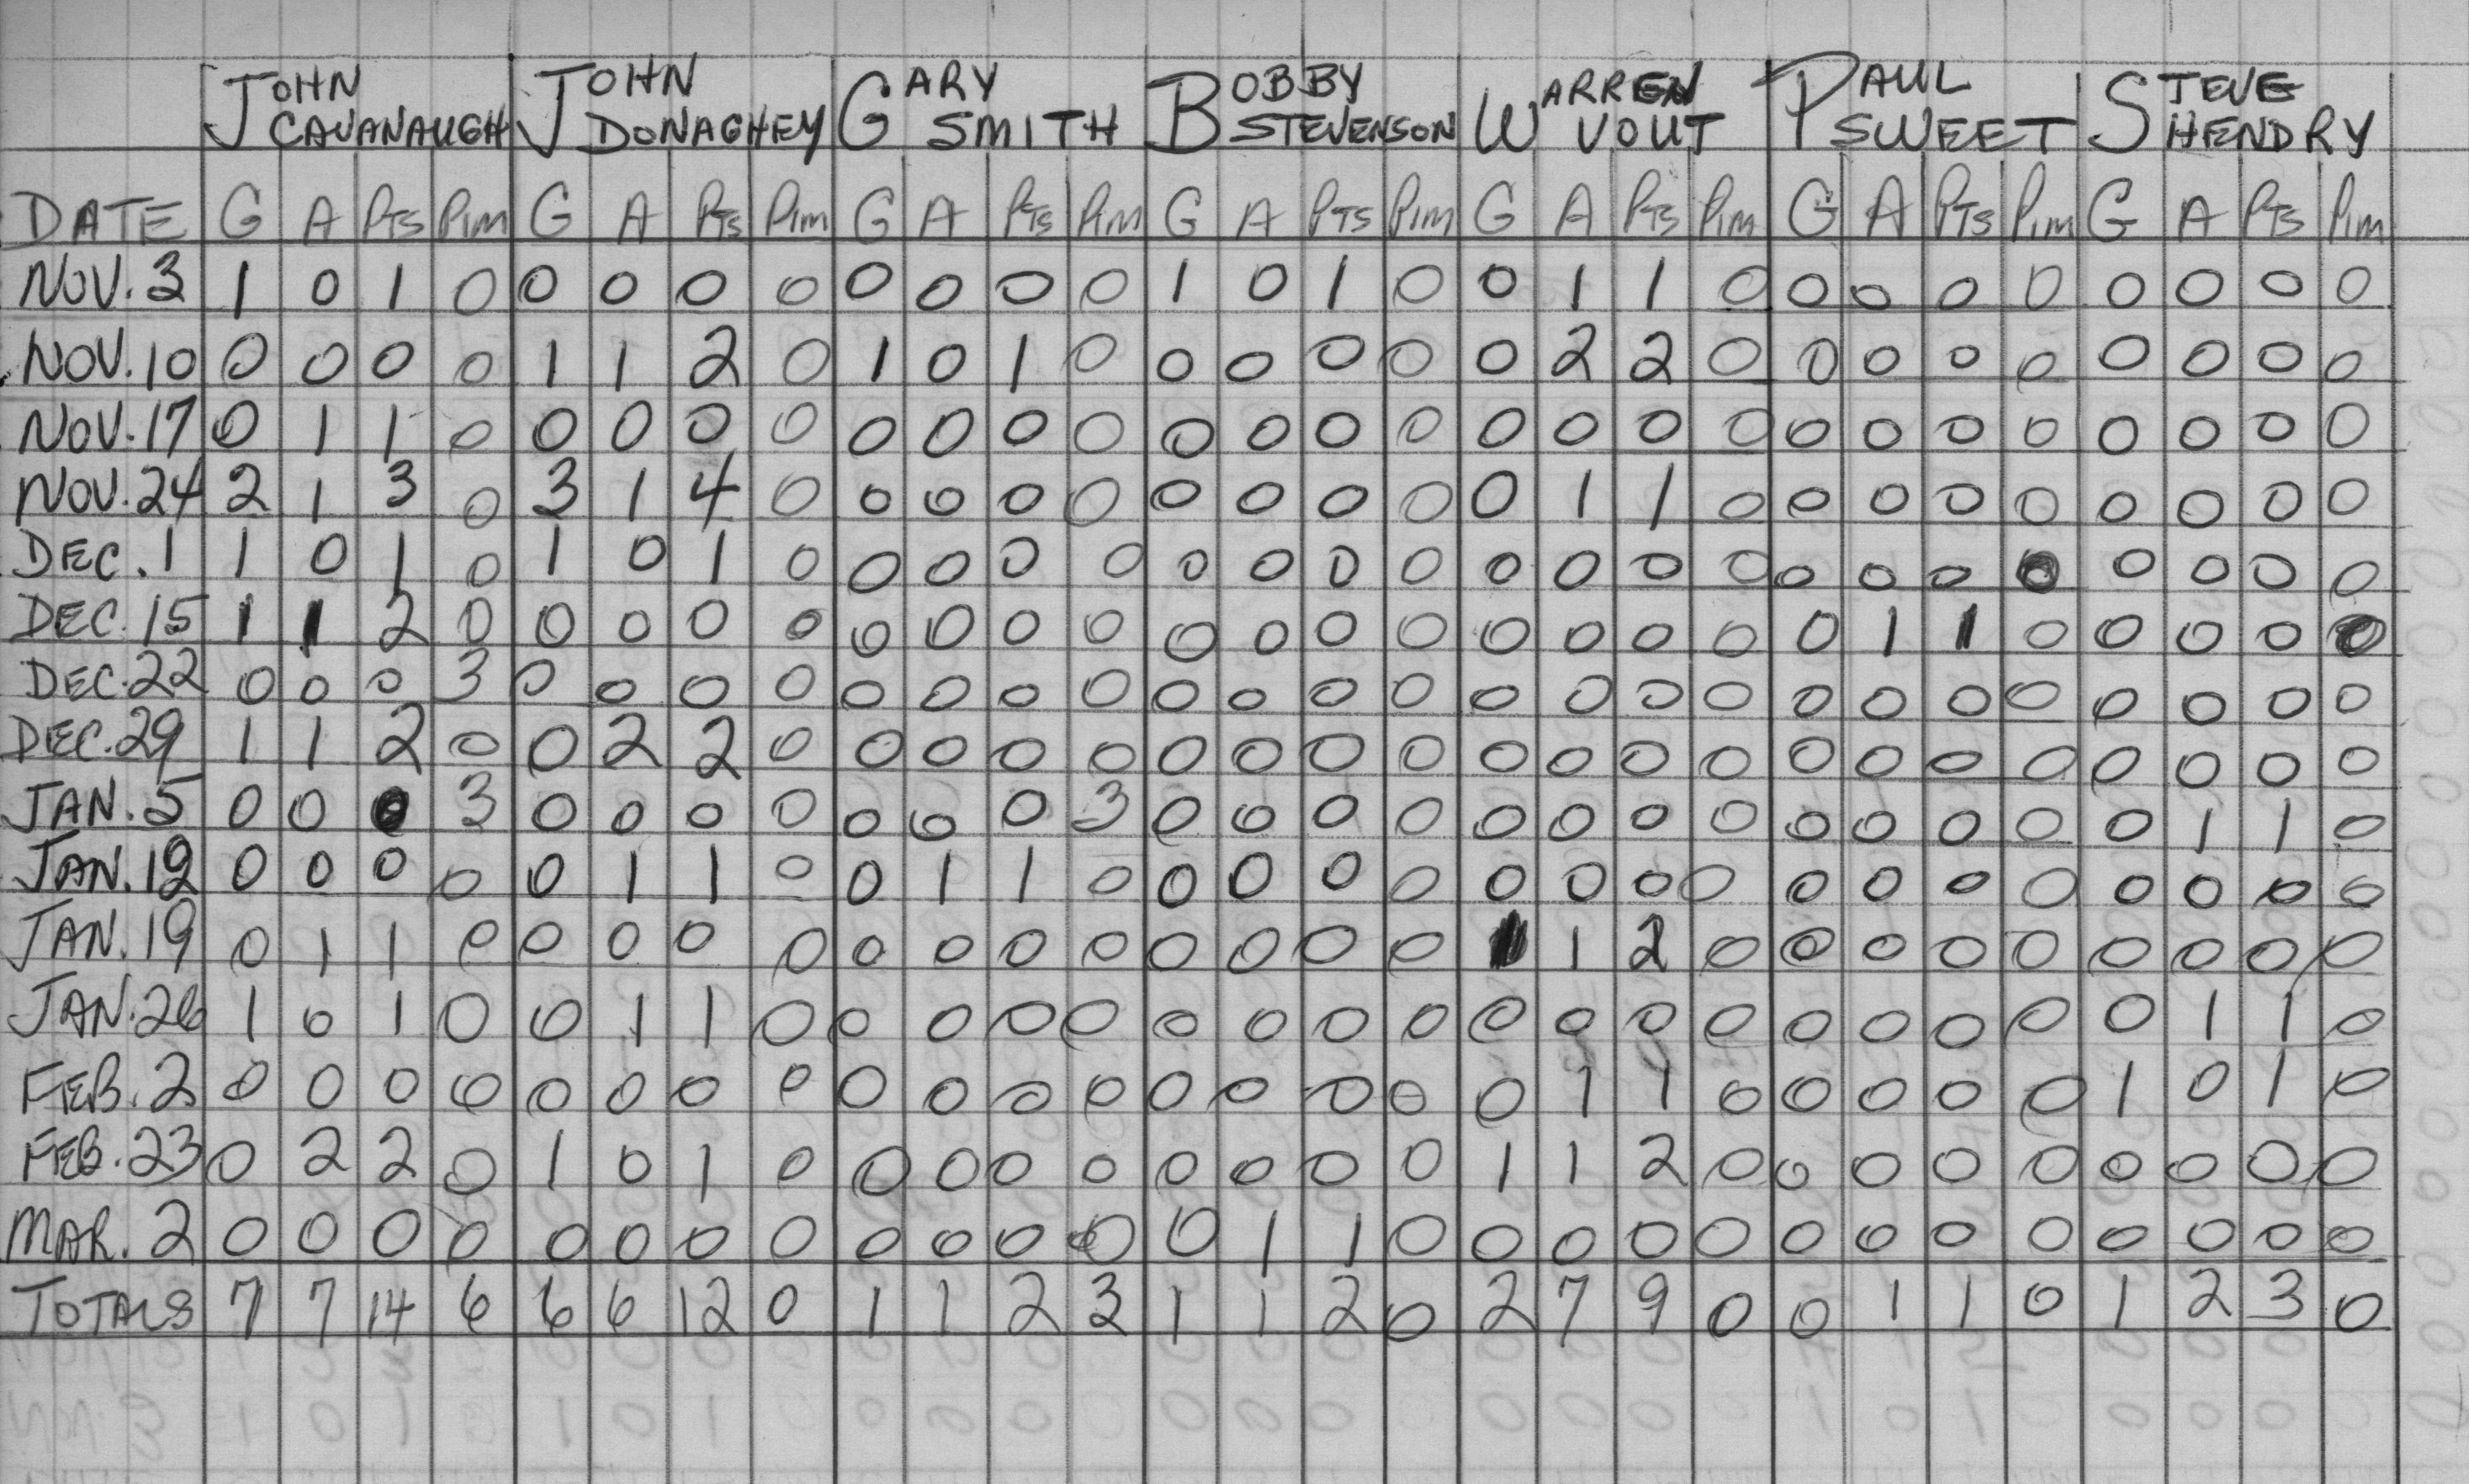 JOHN CAVANAUGH JOHN DONAGHEY GARY SMITH BOBBY STEVENSON WARREN VOUT PAUL SWEET STEVE HENDRY
DATE G A PTS PIM G A PTS PIM G A PTS PIM G A PTS PIM G A PTS PIM G A PTS PIM G A PTS PIM
NOV. 3 1 0 1 0 0 0 0 0 0 0 0 0 1 0 1 0 0 1 1 0 0 0 0 0 0 0 0 0
NOV. 10 0 0 0 0 1 1 2 0 1 0 1 0 0 0 0 0 0 2 2 0 0 0 0 0 0 0 0 0
NOV. 17 0 1 1 0 0 0 0 0 0 0 0 0 0 0 0 0 0 0 0 0 0 0 0 0 0 0 0 0
NOV. 24 2 1 3 0 3 1 4 0 0 0 0 0 0 0 0 0 0 1 1 0 0 0 0 0 0 0 0 0
DEC. 1 1 0 1 0 1 0 1 0 0 0 0 0 0 0 0 0 0 0 0 0 0 0 0 0 0 0 0 0
DEC. 15 1 1 2 0 0 0 0 0 0 0 0 0 0 0 0 0 0 0 0 0 0 1 1 0 0 0 0 0
DEC. 22 0 0 0 3 0 0 0 0 0 0 0 0 0 0 0 0 0 0 0 0 0 0 0 0 0 0 0 0
DEC. 29 1 1 2 0 0 2 2 0 0 0 0 0 0 0 0 0 0 0 0 0 0 0 0 0 0 0 0 0
JAN. 5 0 0 0 3 0 0 0 0 0 0 0 3 0 0 0 0 0 0 0 0 0 0 0 0 0 1 1 0
JAN. 12 0 0 0 0 0 1 1 0 0 1 1 0 0 0 0 0 0 0 0 0 0 0 0 0 0 0 0 0
JAN. 19 0 1 1 0 0 0 0 0 0 0 0 0 0 0 0 0 1 1 2 0 0 0 0 0 0 0 0 0
JAN. 26 1 0 1 0 0 1 1 0 0 0 0 0 0 0 0 0 0 0 0 0 0 0 0 0 0 1 1 0
FEB. 2 0 0 0 0 0 0 0 0 0 0 0 0 0 0 0 0 0 1 1 0 0 0 0 0 1 0 1 0
FEB. 23 0 2 2 0 1 0 1 0 0 0 0 0 0 0 0 0 1 1 2 0 0 0 0 0 0 0 0 0
MAR. 2 0 0 0 0 0 0 0 0 0 0 0 0 0 1 1 0 0 0 0 0 0 0 0 0 0 0 0 0
TOTALS 7 7 14 6 6 6 12 0 1 1 2 3 1 1 2 0 2 7 9 0 0 1 1 0 1 2 3 0